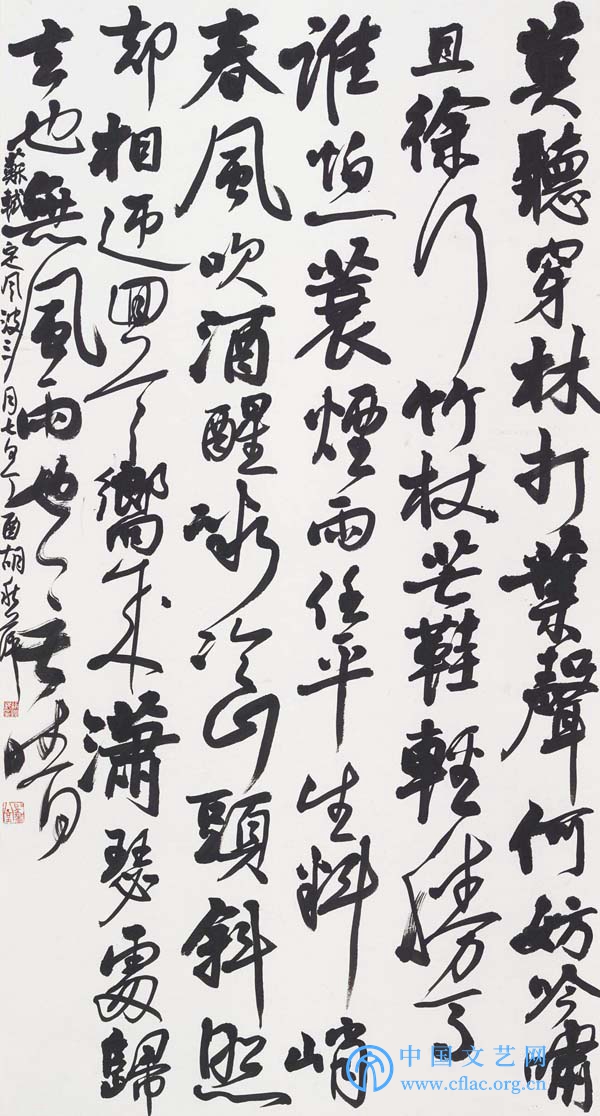 莫聽穿林打葉聲何妨吟嘯
且徐行竹杖芒鞋輕勝馬
誰怕一蓑煙雨任平生料峭
春風吹酒醒微冷山頭斜照
却相迎回首嚮來瀟瑟處歸
去也無風雨也無晴
蘇軾定風波三月七日丁酉胡秋萍
中国文艺网
www.cflac.org.cn